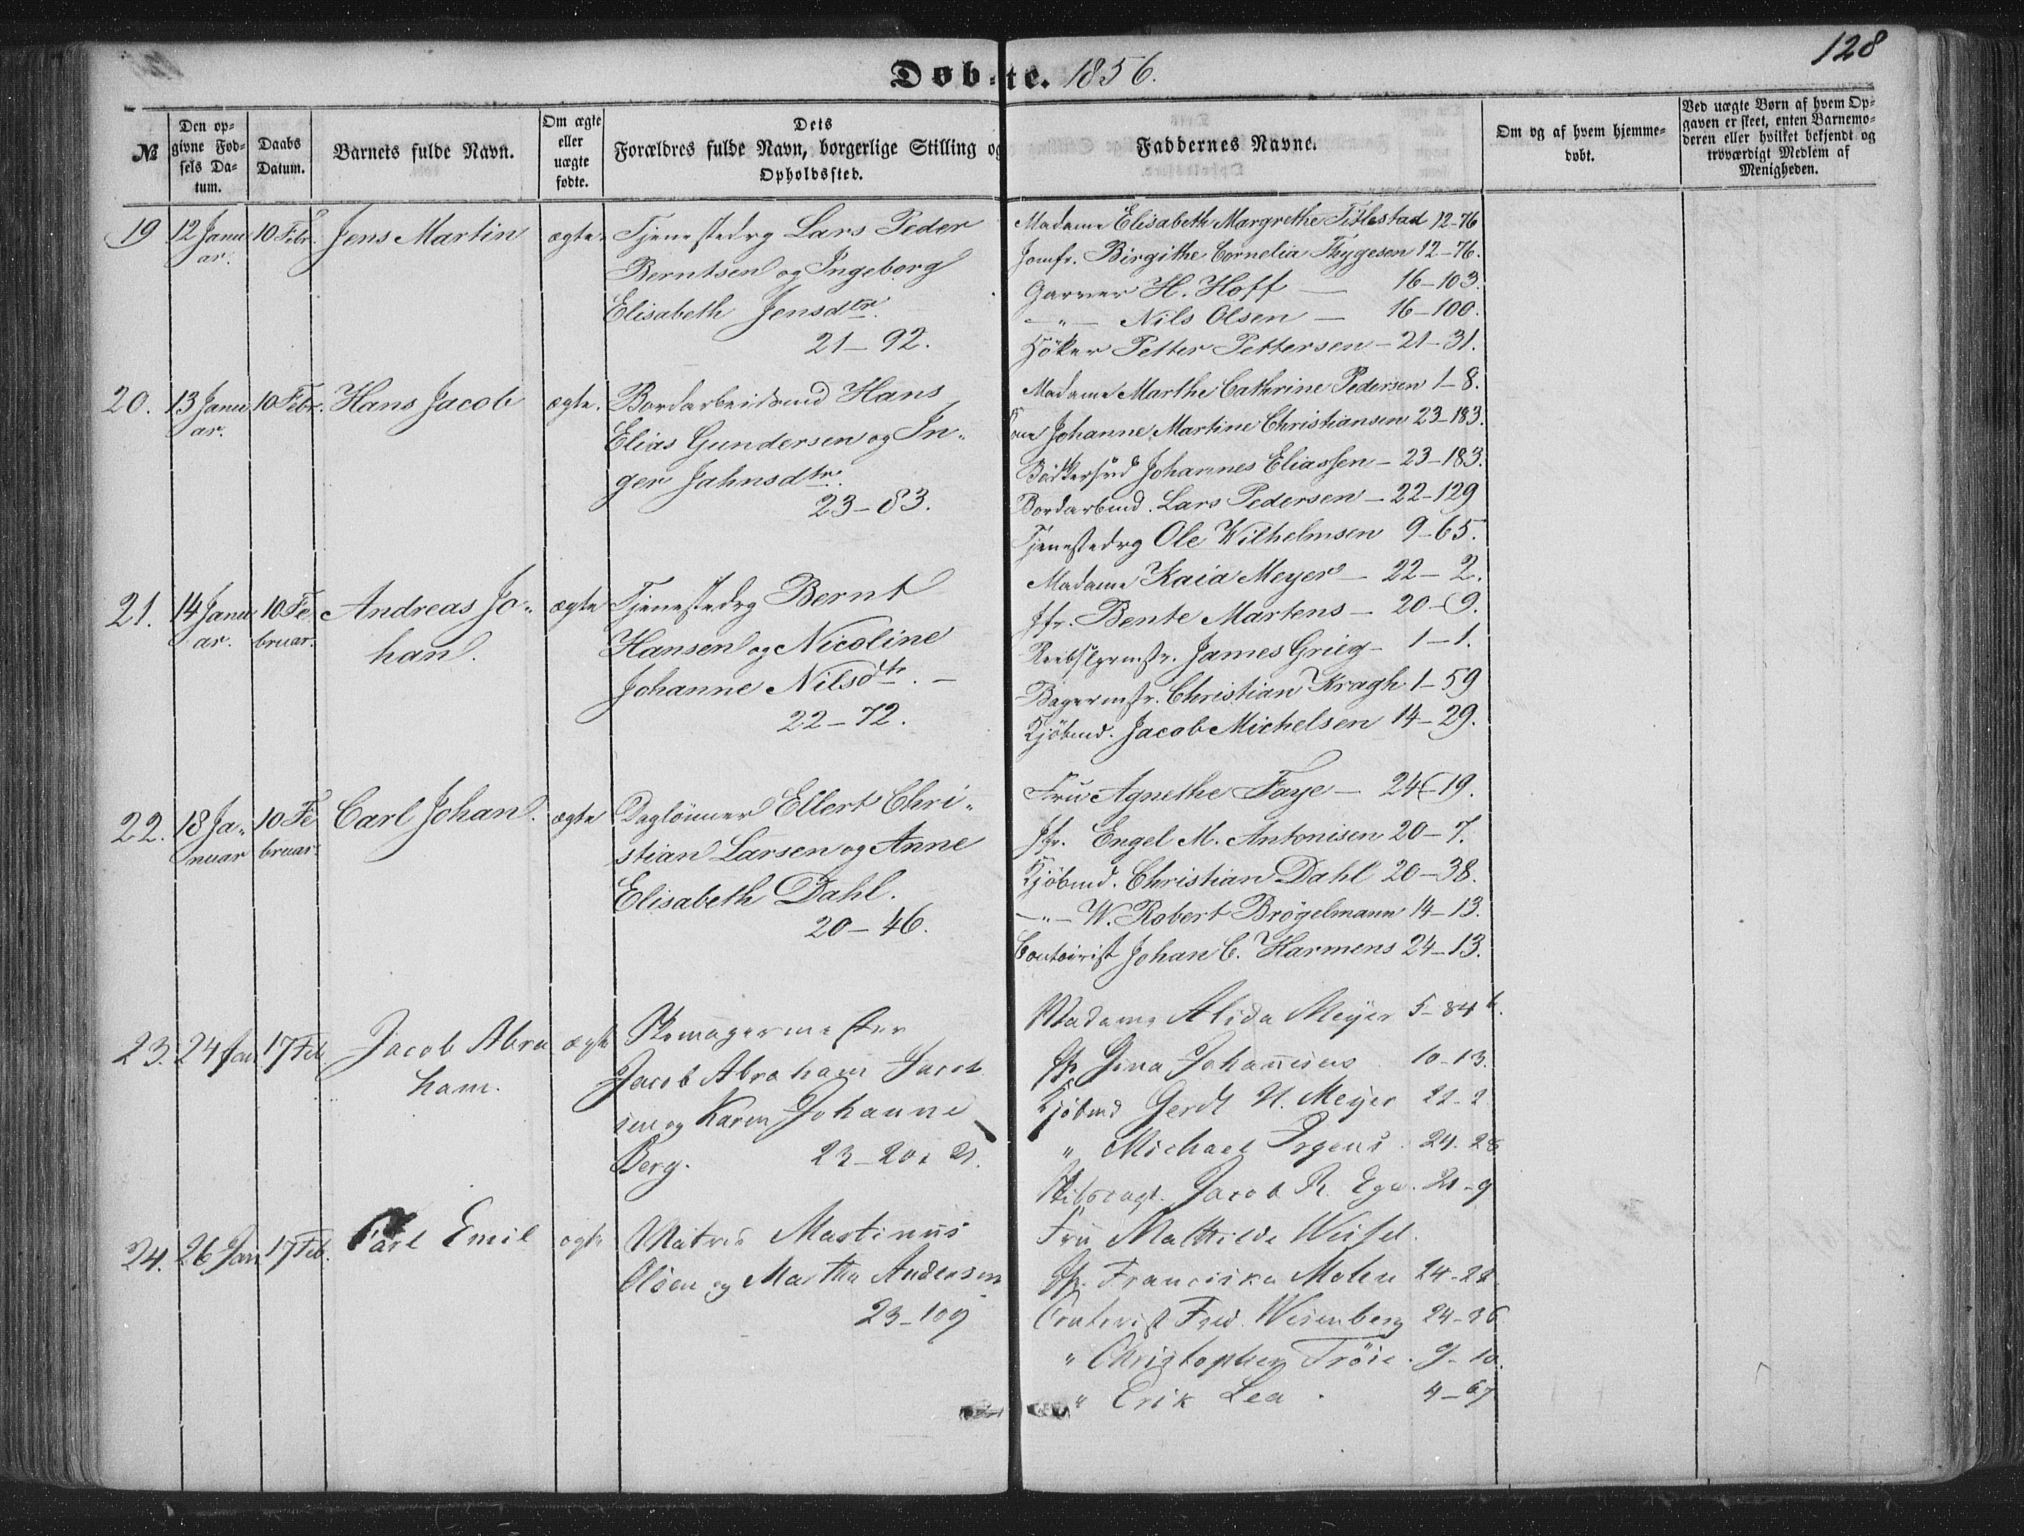 128
Døbte. 1856.
№
Den opgivne Fødsels Datum.
Daabs Datum.
Barnets fulde Navn.
Om ægte eller uægte fødte.
Dets Forældres fulde Navn, borgerlige Stilling og Opholdssted.
Faddernes Navne.
Om og af hvem hjemmedøbt.
Ved uægte Børn af hvem Opgaven er skeet, enten Barnemoderen eller hvilket bekjendt og troværdigt Medlem af Menigheden.
19 12 Januar. 10 Febr. Jens Martin ægte.
Tjenestedrg Lars Peder
Berntsen og Ingeborg
Elisabeth Jensdtr.
21-92.
Madame Elisabeth Margrethe Titlestad 12-76
Jomfr. Birgithe Cornelia Thygesen 12-76.
Garver H. Hoff — 16-103.
—"— Nils Olsen — 16-100.
Høker Petter Pettersen - 21-31.
20. 13 Januar. 10 Febr. Hans Jacob ægte.
Bordarbeidsmd Hans
Elias Gundersen og In-
ger Jahnsdtr.
23-83.
Madame Marthe Cathrine Pedersen 1-8.
Kone Johanne Martine Christiansen 23-183.
Bødkersvd Johannes Eliassen - 23-183.
Bordarbmd. Lars Pedersen - 22-129
Tjenestedrg Ole Wilhelmsen 9-65.
21. 14 Januar. 10 Februar. Andreas Jo-
han.
ægte
Tjenestedrg Bernt
Hansen og Nicoline
Johanne Nilsdtr. —
22-72.
Madame Kaia Meyer - 22-2.
Jfr. Bente Martens - 20-9.
Reebslgrmstr. James Grieg - 1-1.
Bagermstr. Christian Kragh 1-59
Kjøbmd. Jacob Michelsen 14-29.
22. 18 Januar 10 Februar. Carl Johan. ægte
Daglønner Ellert Chri-
stian Larsen og Anne
Elisabeth Dahl.
20-46.
Fru Agnethe Faye - 24-19.
Jfr. Engel M. Antonisen 20-7.
Kjøbmd. Christian Dahl 20-38.
—"— W. Robert Brøgelmann 14-13.
Contoirist Johan C. Harmens 24-13.
23. 24 Jan 17 Feb. Jacob Abra
ham.
ægte
Skomagermester
Jacob Abraham Jacob
sen og Karen Johanne
Berg. 23-20 21.
Madame Alida Meyer 5-84 b.
Jfr Gina Johannesens 10-13.
Kjøbmd Gerdt N. Meyer 22-2
" Michael Irgens. 24-28
Jacob R. 21-9
24. 26 Jan 17 Feb. Carl Emil ægte
Matros Martinus
Olsen og Martha Andersen
23-109
Fru Mathilde
Jfr. Franciska
Contorist Fred. Wesenberg 24-36
" Christopher Trøie. 9-10.
" Erik Lea. 4-67